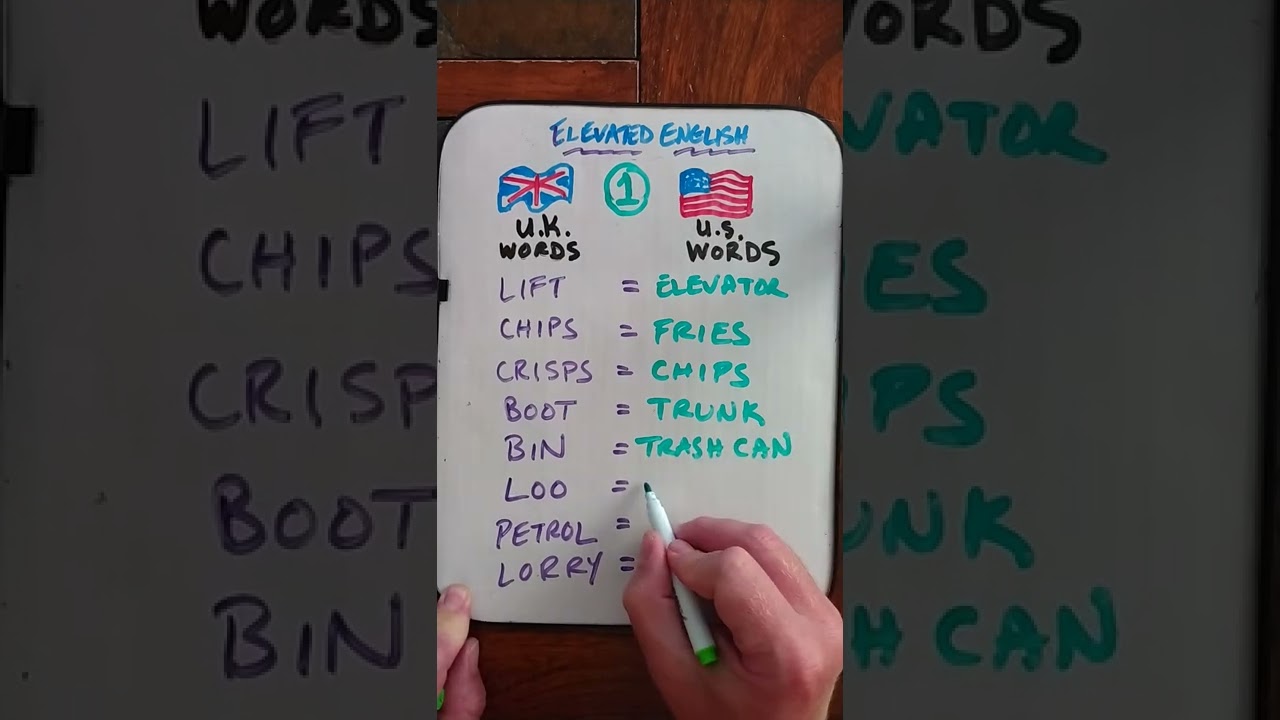 ELEVATED ENGLISH
1
U.K. WORDS
U.S. WORDS
LIFT = ELEVATOR
CHIPS = FRIES
CRISPS = CHIPS
BOOT = TRUNK
BIN = TRASH CAN
LOO =
PETROL =
LORRY =